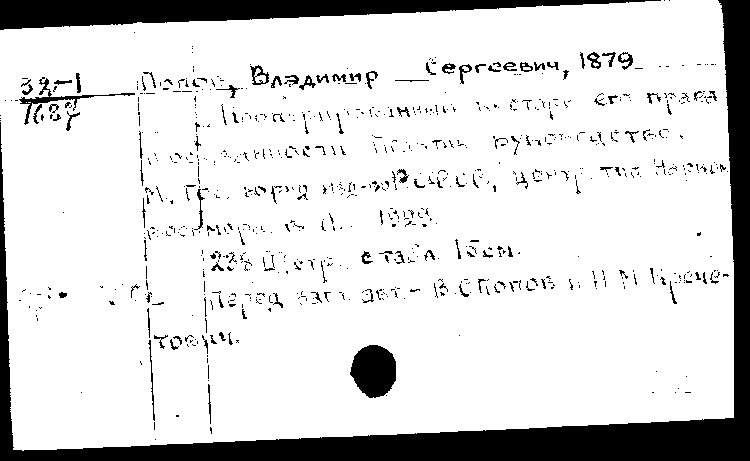 32-1
Попов, Владимир Сергеевич, 1879
1687
Кооперированный кустарь его права
и обязанности Практич руководство.
М. Гос. юрид изд-во РСФСР, центр. тип Нарком
воемора в Л. 1929.
238 стр. с табл. 16см.
Перед загл. авт. - В.С Попов и Н М Крече-
тович.